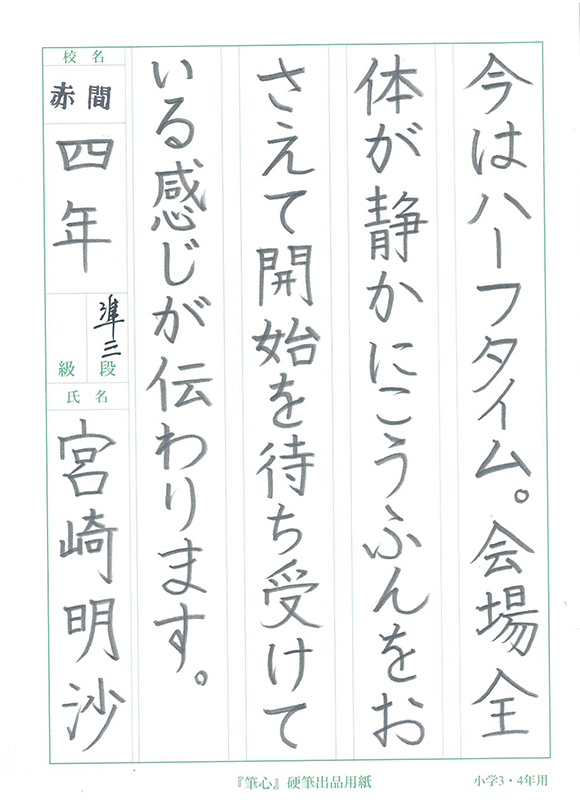 今はハーフタイム。会場全
体が静かにこうふんをお
さえて開始を待ち受けて
いる感じが伝わります。
校名
赤間
四年
準三段
級
氏名
宮崎明沙
『筆心』硬筆出品用紙
小学3・4年用